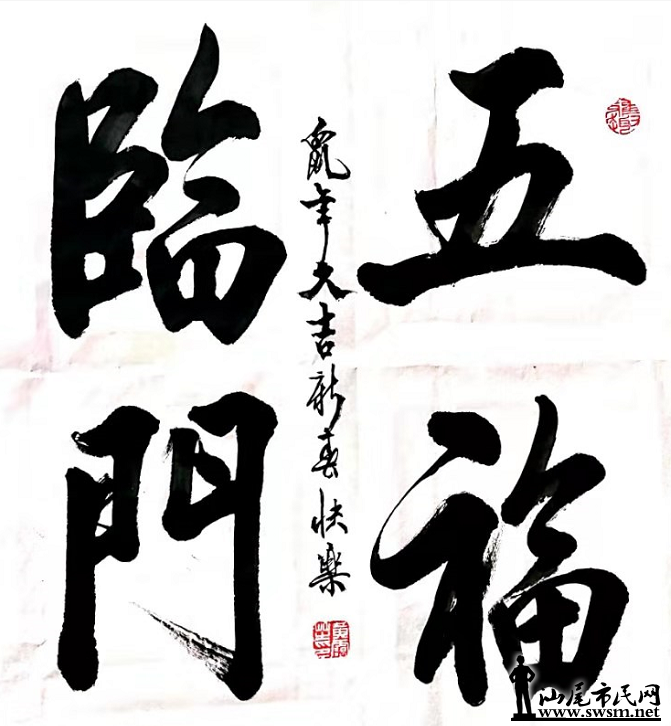 五福
臨門
鼠年大吉新春快樂
汕尾市民网
www.swsm.net